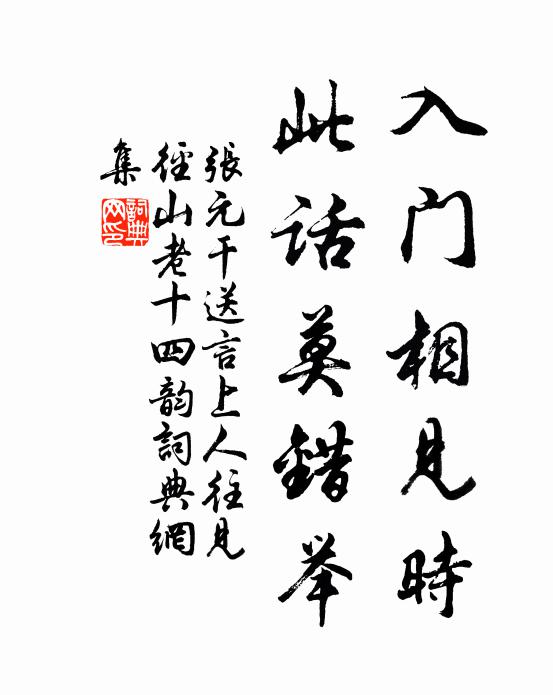 入门相見時
此话莫錯举
張元干送言上人往見
徑山老十四韵詞典網
集
詞典
网印